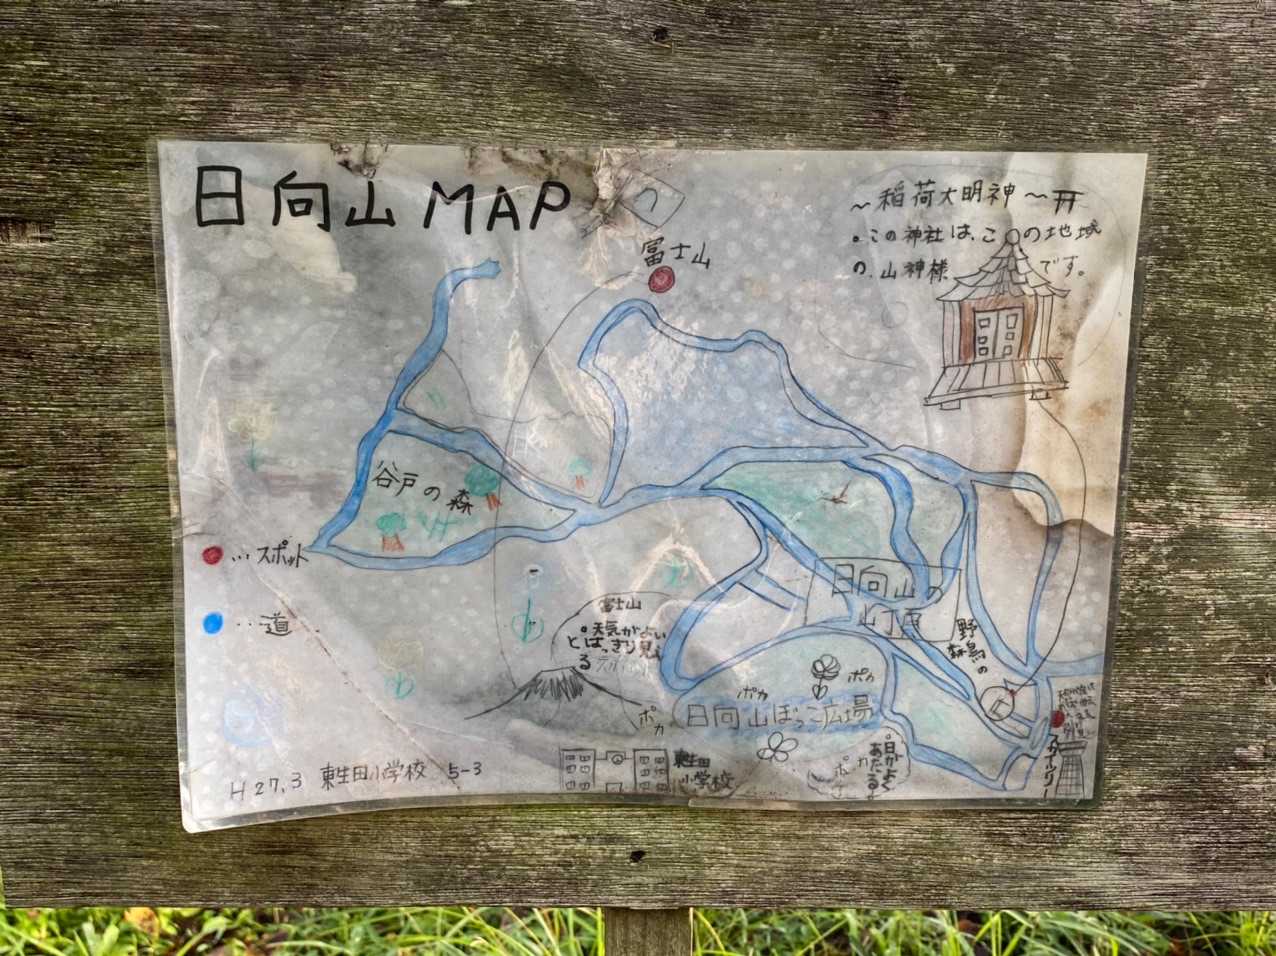 日向山 MAP
〜稲荷大明神〜
。この神社は、この地域
の、山神様です。
富士山
谷戸の森
…スポット
…道
富士山
。天気がよい
とはっきり見え
る
日向山の
山原
野鳥の
森
ポカ
ポカ
日向山ぼっこ広場
ポカ
ポカ
日が
あたた
るよ
スカイツリー
東生田
小学校
H27.3 東生田小学校 5-3